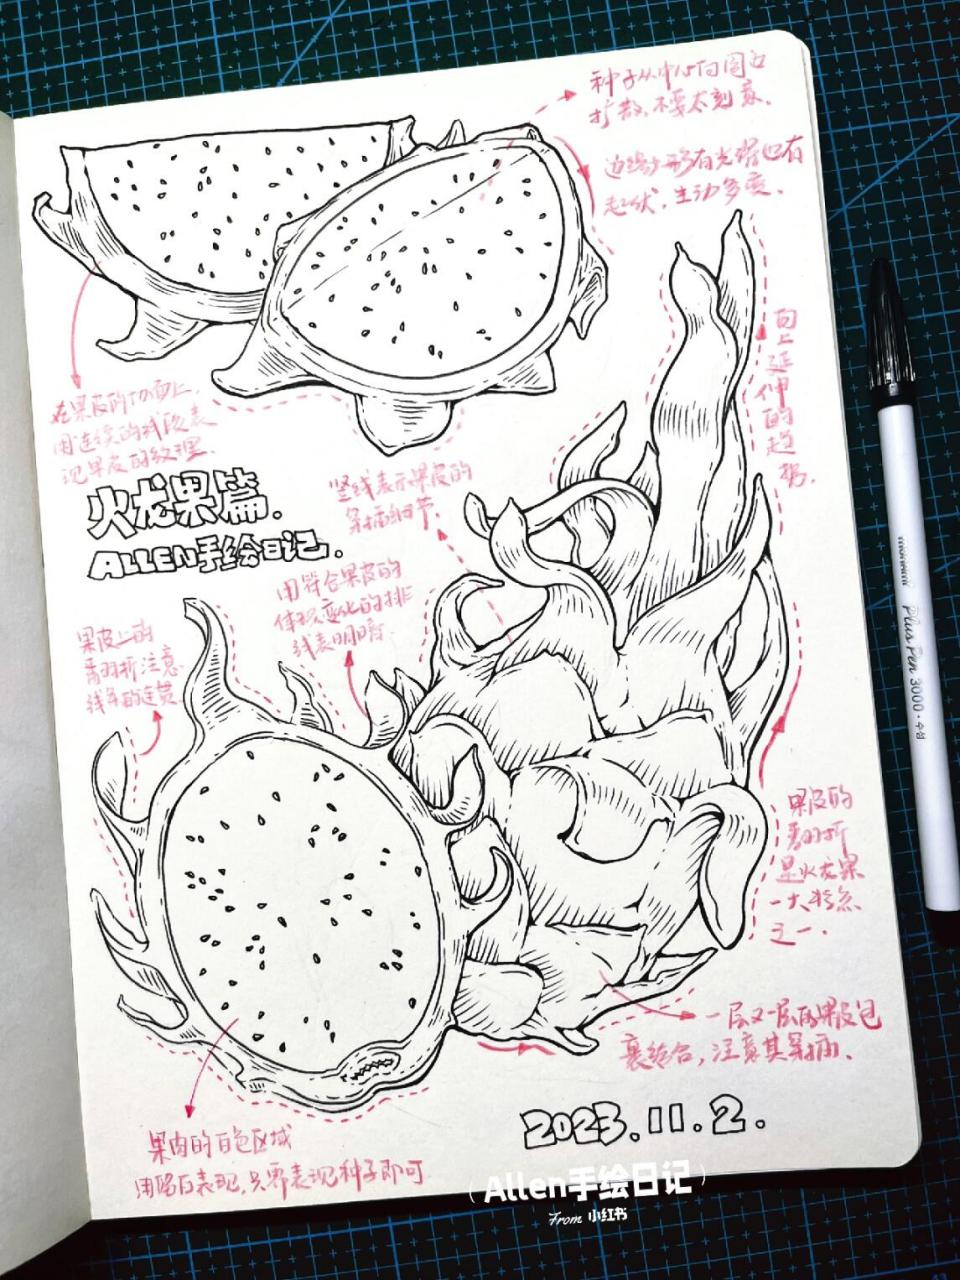 种子从中心向周边
扩散,不要太刻意.
边缘外形有光滑也有
起伏,生动多变.
向上延伸的趋势.
在果皮的切面上
用连续的线段表
现果皮的纹理.
火龙果篇.
ALLEN手绘日记.
竖线表示果皮的
穿插细节.
用符合果皮的
体积变化的排
线表明暗.
果皮上的
翻折注意
线条的连贯.
果皮的
翻折
是火龙果
一大特点
之一.
一层又一层的果皮包
裹结合,注意其穿插.
果肉的白色区域
用留白表现,只需表现种子即可
2023.11.2.
Allen手绘日记
From 小红书
monami Plus Pen 3000·수성